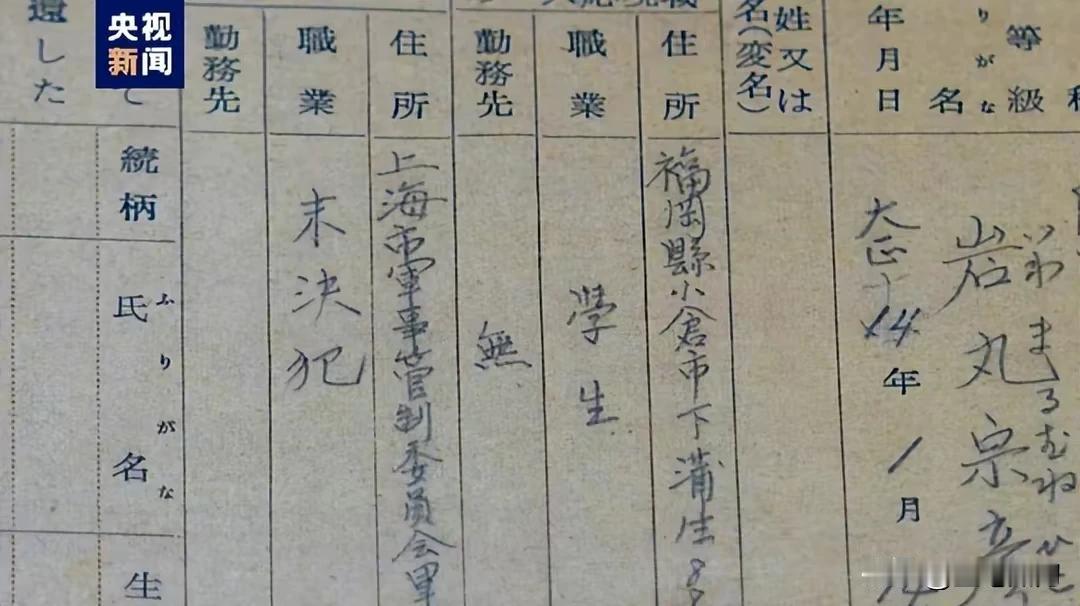 央视
新闻
等級
りがな
名
いわまるむね
岩丸宗
年月日
大正
14年1月
14
姓又は
名(変名)
住所
福岡縣小倉市下蒲生
職業
學生
勤務先
無
住所
上海市軍事管制委員会軍
職業
未決犯
勤務先
て
続柄
ふりがな
氏名
生
還した